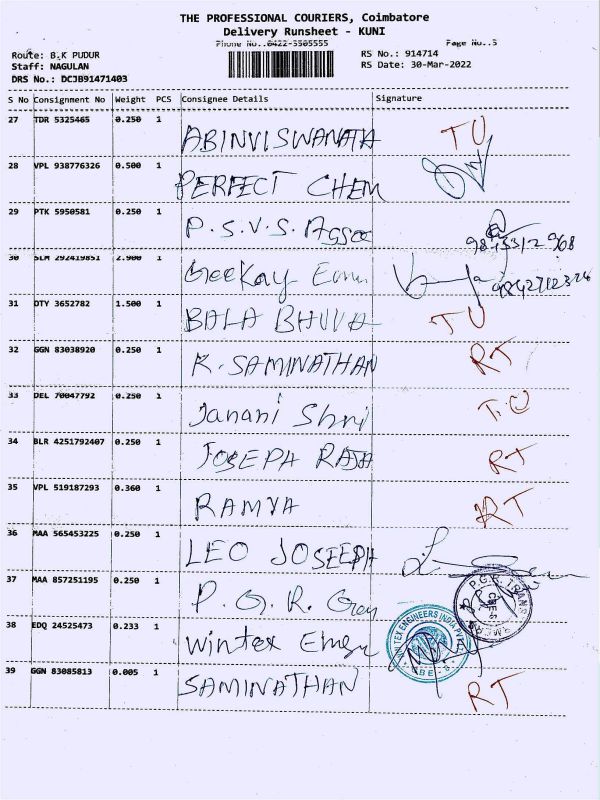 THE PROFESSIONAL COURIERS, Coimbatore
Delivery Runsheet - KUNI
Phone No..0422-3505555 Page No..3
Route: B.K PUDUR RS No.: 914714
Staff: NAGULAN RS Date: 30-Mar-2022
DRS No.: DCJB91471403
S No Consignment No Weight PCS Consignee Details Signature
27 TDR 5325465 0.250 1 ABINVISWANATA TU
28 VPL 938776326 0.500 1 PERFECT CHEM
29 PTK 5950581 0.250 1 P.S.V.S. Asso
30 SLM 292419851 2.900 1 Geekay
31 DTY 3652782 1.500 1 BALA BHUVA TU
32 GGN 83038920 0.250 1 K. SAMINATHAN RT
33 DEL 70047792 0.250 1 Janani Shri T.U
34 BLR 4251792407 0.250 1 JOSEPH RAJA RT
35 VPL 519187293 0.360 1 RAMYA RT
36 MAA 565453225 0.250 1 LEO JOSEEPH
37 MAA 857251195 0.250 1 P.G.R. P.G.R. TRANS
38 EDQ 24525473 0.233 1 Wintex TEX ENGINEERS INDIA PVT
39 GGN 83085813 0.005 1 SAMINATHAN RT